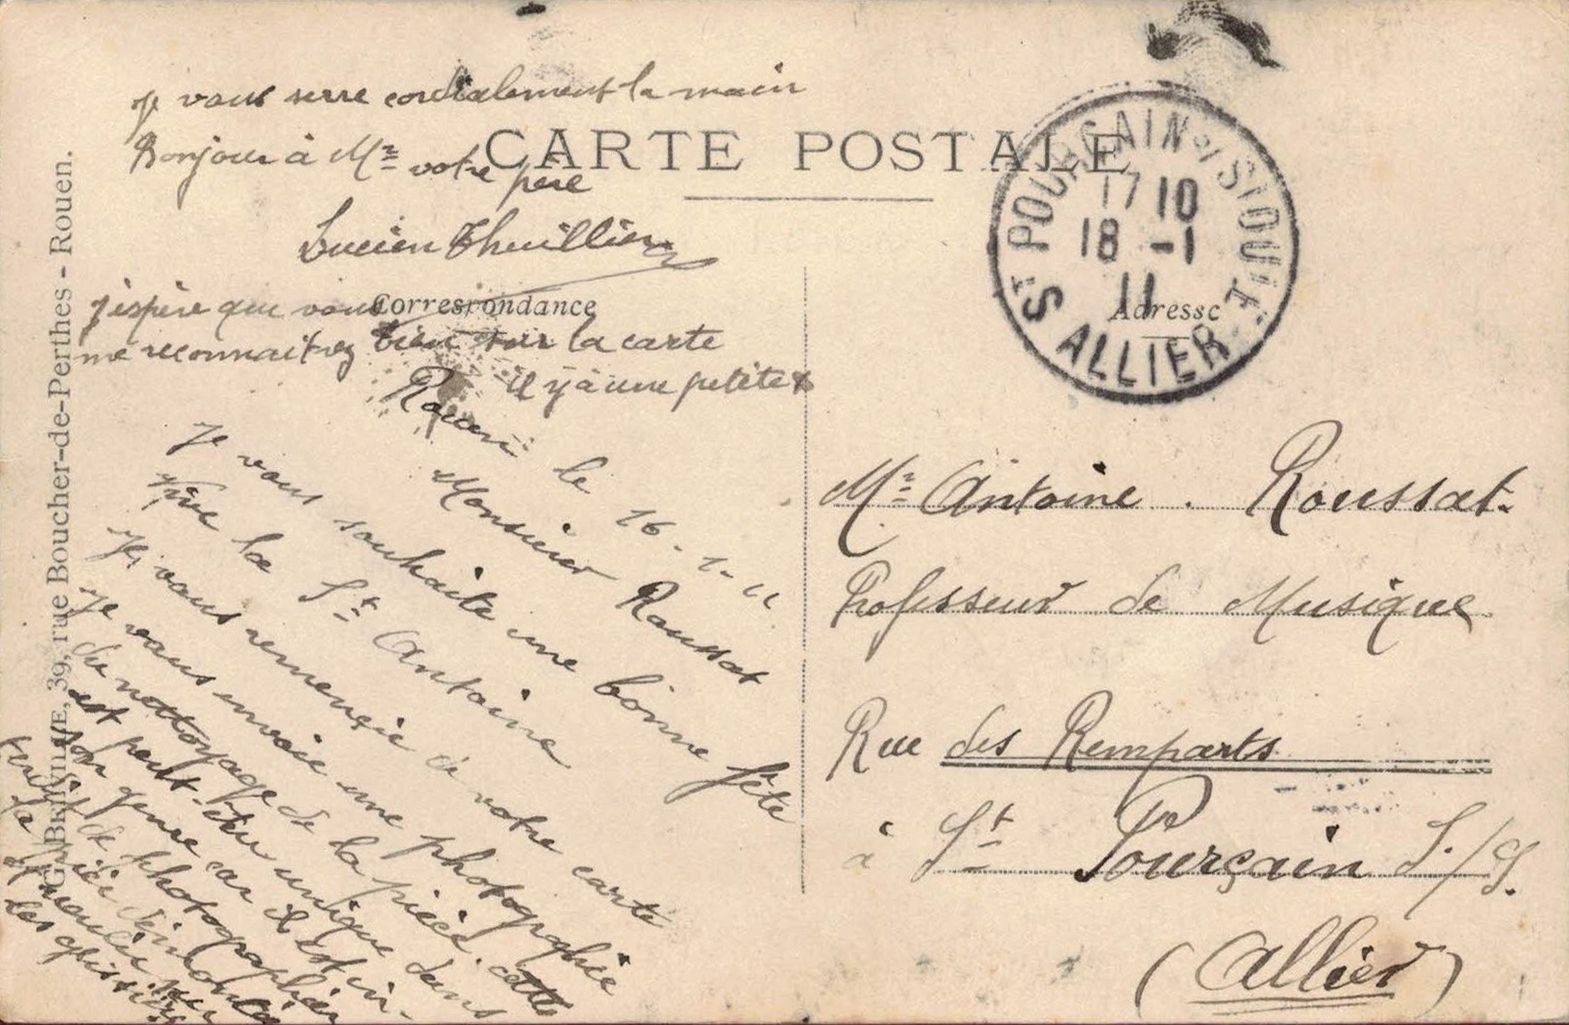 Je vous serre cordialement la main
Bonjour à Mr votre père
Lucien Thuillier
j'espère que vous
me reconnaitrez bien sur la carte
il y à une petite x
CARTE POSTALE
Correspondance
Adresse
Rouen le 16-1-11
Monsieur Roussat
Je vous souhaite une bonne fête
Vive la St Antoine
Je vous remercie de votre carte
Je vous envoie une photographie
du nettoyage de la pièce cette
est peut-être unique dans
son genre car il est in-
terdit de photographier
la pièce démontée
les glissières
G. BERTHE, 39, rue Boucher-de-Perthes - Rouen.
ST POURÇAIN S/SIOULE
17 10
18 -1
11
ALLIER
Mr Antoine Roussat.
Professeur de Musique
Rue des Remparts
à St Pourçain S./S.
(Allier)